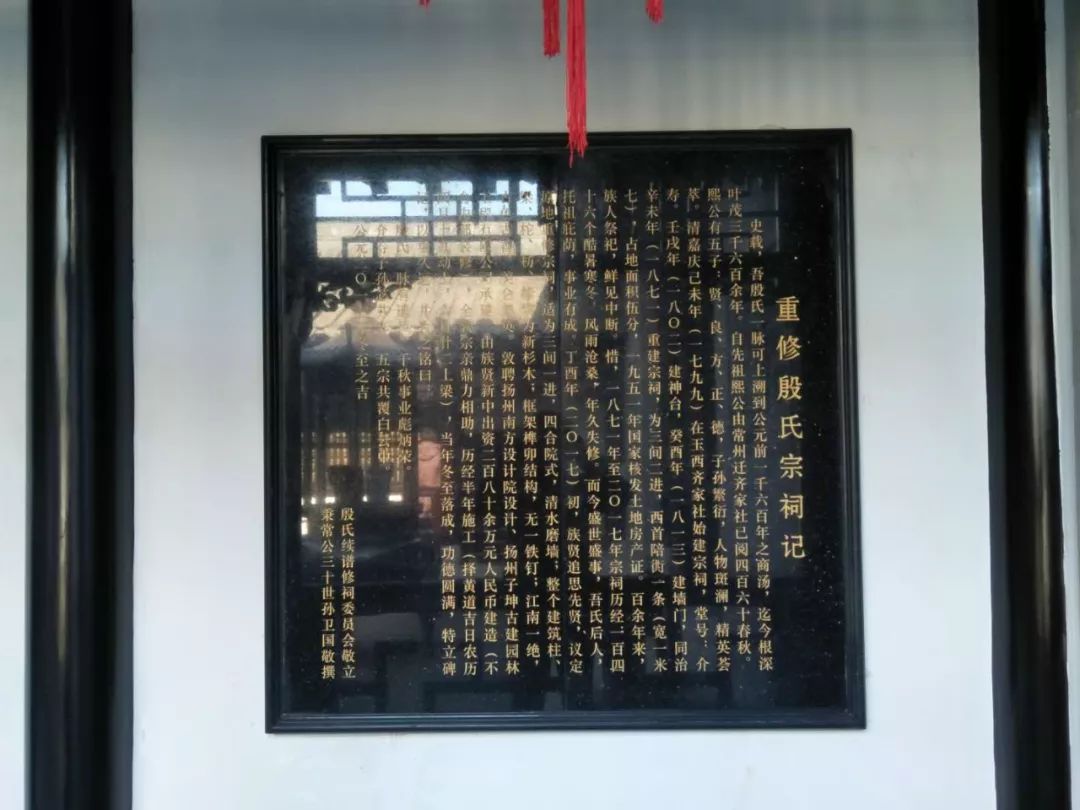 重修殷氏宗祠记
史载，吾殷氏一脉可上溯到公元前一千六百年之商汤，迄今根深
叶茂三千六百余年。自先祖熙公由常州迁齐家社已阅四百六十春秋。
熙公有五子：贤、良、方、正、德，子孙繁衍，人物斑澜，精英荟
萃。清嘉庆己未年（一七九九）在玉西齐家社始建宗祠，堂号：介
寿。壬戌年（一八〇二）建神台，癸酉年（一八一三）建墙门，同治
辛未年（一八七一）重建宗祠，为三间二进，西首陪街一条（宽一米
七），占地面积伍分，一九五一年国家核发土地房产证。百余年来，
族人祭祀，鲜见中断，惜，一八七一年至二〇一七年宗祠历经一百四
十六个酷暑寒冬，风雨沧桑，年久失修。而今盛世盛事，吾氏后人，
托祖庇荫，事业有成，丁酉年（二〇一七）初，族贤追思先贤，议定
原地重修宗祠，适为三间一进，四合院式，清水磨墙，整个建筑柱、
为新杉木，框架榫卯结构，无一铁钉，江南一绝，
敦聘扬州南方设计院设计、扬州子坤古建园林
由族贤新中出资二百八十余万元人民币建造（不
宗亲鼎力相助，历经半年施工（择黄道吉日农历
上梁），当年冬至落成，功德圆满，特立碑
之铭曰：
千秋事业彪炳荣。
五宗共覆白云中。
公元二〇 冬至之吉
殷氏续谱修祠委员会敬立
秉常公三十世孙卫国敬撰